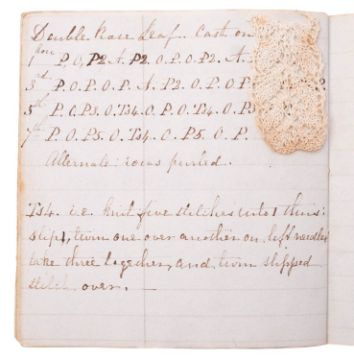 Double Rose Leaf. Cast on
1st row P. O. P2. A. P2. O. P. O. P2. A.
3rd P. O. P. O. P. A. P2. O. P. O. P
5th P. O. P3. O. Ts4. O. P. O. Ts4. O. P3
7th P. O. P5. O. Ts4. O. P5. O. P.
Alternate rows purled.
Ts4. i.e. knit five stitches into 1 thus:
slip 1, turn one over another on left needle
take three together, and turn slipped
stitch over.